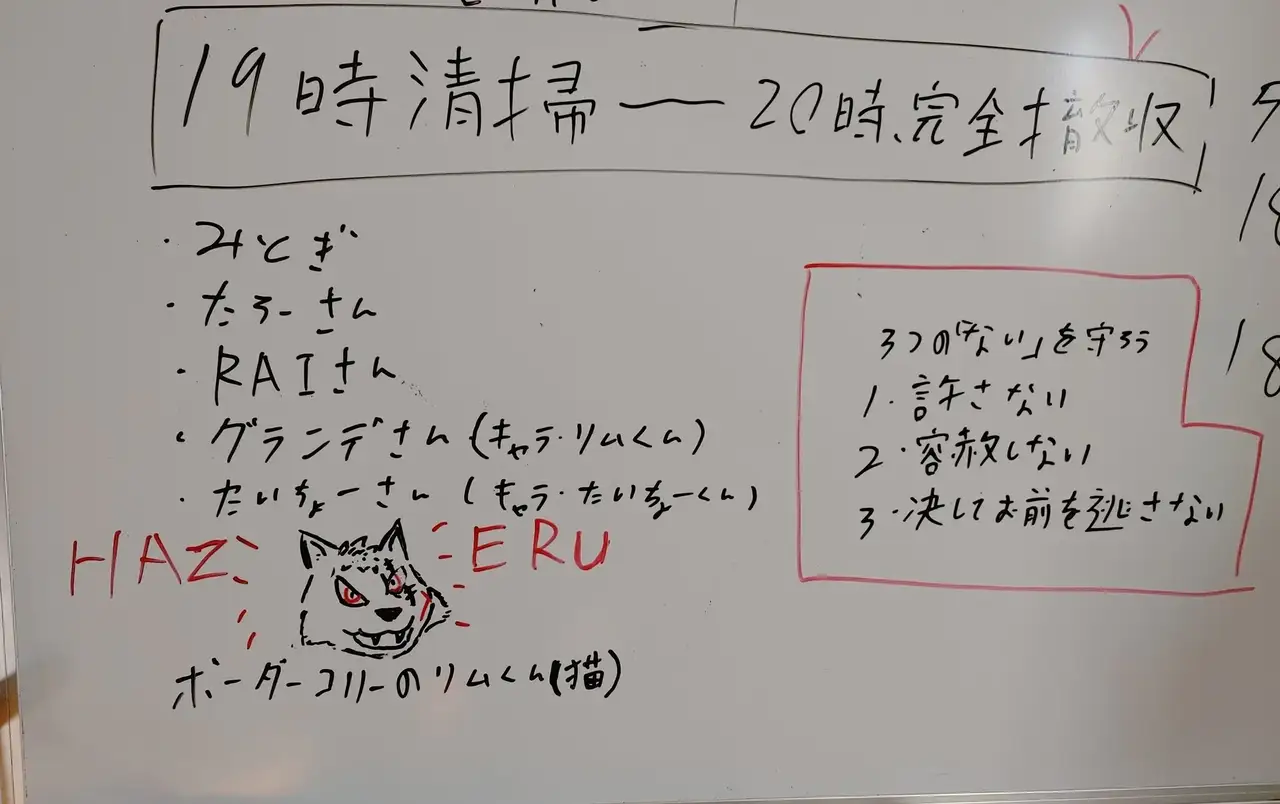 19時清掃 ― 20時完全撤収
・みとぎ
・たろーさん
・RAIさん
・グランデさん(キャラ・リムくん)
・たいちょーさん(キャラ・たいちょーくん)
HAZ ERU
ボーダーコリーのリムくん(描)
3つの「ない」を守ろう
1.許さない
2.容赦しない
3.決してお前を逃さない
18
18